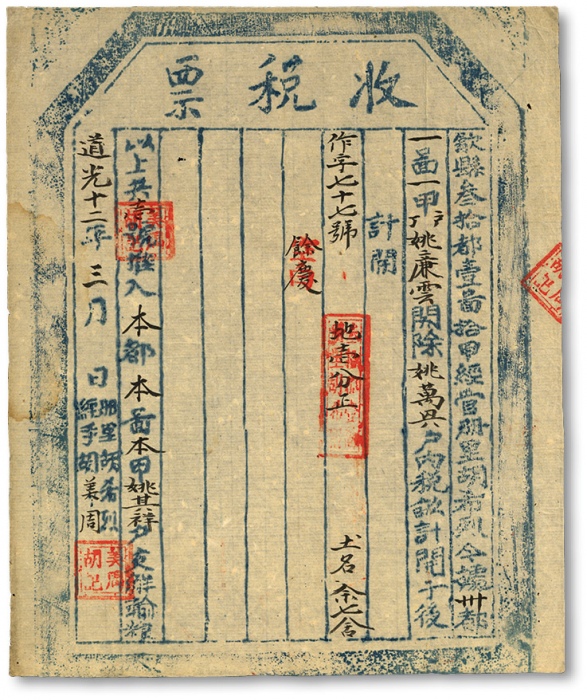 收稅票
歙縣叁拾都壹啚拾甲經管冊里胡希烈今據卅都
一啚一甲戶姚兼雲開除姚萬興戶內稅畝計開于後
計開
作字七十七號 地壹分正 土名余七舍
餘慶
以上共壹號推入本都本啚本甲姚其祥戶支解輸糧
道光十二年三月 日冊里胡希烈
經手胡美周
美周胡記